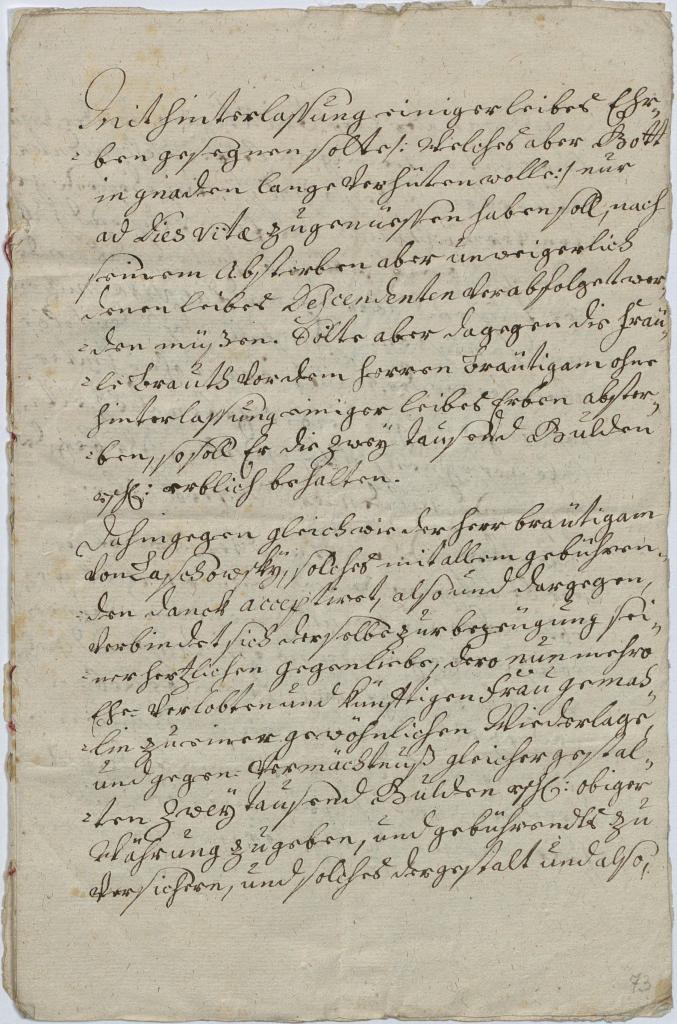 Mit hinterlassung einiger leibes Ehr-
ben gesegnen solte /: welches aber Gott
in gnaden lange verhüten wolle :/ nur
ad dies vitæ zugenuessen haben soll, nach
seinem Absterben aber unweigerlich
denen leibes Descendenten verabfolget wer
den müßen. Solte aber dagegen die Freü-
le Brauth vor dem herren Bräutigam ohne
hinterlassung einiger leibes Erben abster-
ben, so soll Er die zwey tausend Gulden
rh: erblich behalten.
Dahingegen gleich wie der herr bräutigam
von Laschowsky, solches mit allem gebühren-
den danck acceptiret, also und dargegen,
verbindet sich derselbe zur bezeügung sei-
ner hertzlichen gegenliebe, dero nunmehro
Ehe-Verlobten und künfftigen Frau gemah-
lin zu einer gewöhnlichen Wiederlage,
und gegen-Vermächtnuß gleicher gestal-
ten zwey tausend Gulden rh: obiger
Währung zu geben, und gebührendts zu
versichern, und solches dergestalt und also,
73